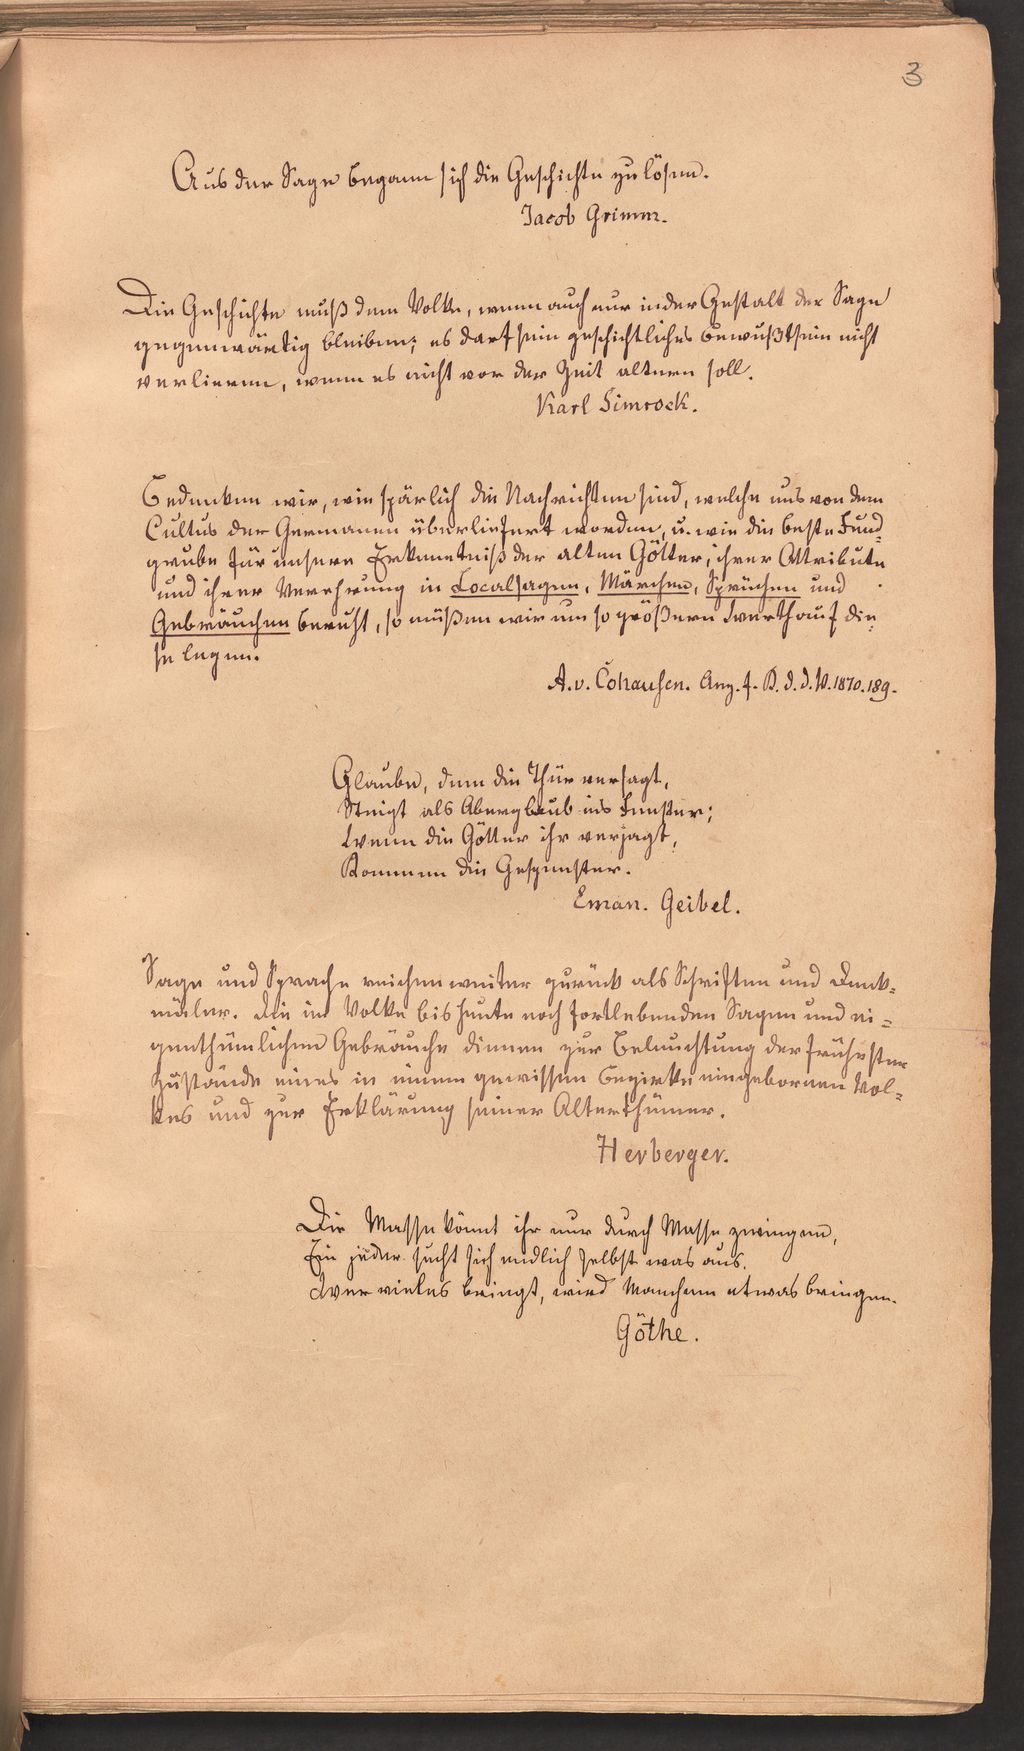 3
Aus der Sage begann sich die Geschichte zu lösen.
Jacob Grimm.
Die Geschichte muß dem Volke, wenn auch nur in der Gestalt der Sage
gegenwärtig bleiben; es darf sein geschichtliches Bewußtsein nicht
verlieren, wenn es nicht vor der Zeit altern soll.
Karl Simrock.
Bedenken wir, wie spärlich die Nachrichten sind, welche uns von dem
Cultus der Germanen überliefert worden, u. wie die beste Fund-
grube für unsere Erkenntniß der alten Götter, ihrer Attribute
und ihrer Verehrung in Localsagen, Märchen, Sprüchen und
Gebräuchen beruht, so müßen wir um so größern Werth auf die-
se legen.
A. v. Cohausen. Anz. f. K. d. d. V. 1870. 189.
Glaube, dem die Thür versagt,
Steigt als Aberglaub ins Fenster;
Wenn die Götter ihr verjagt,
Kommen die Gespenster.
Eman. Geibel.
Sage und Sprache reichen weiter zurück als Schriften und Denk-
mäler. Die im Volke bis heute noch fortlebenden Sagen und ei-
genthümlichen Gebräuche dienen zur Beleuchtung der frühesten
Zustände eines in einem gewissen Bezirke eingebornen Vol-
kes und zur Erklärung seiner Alterthümer.
Herberger.
Die Masse könnt ihr nur durch Masse zwingen,
Ein jeder sucht sich endlich selbst was aus.
Wer vieles bringt, wird Manchem etwas bringen.
Göthe.